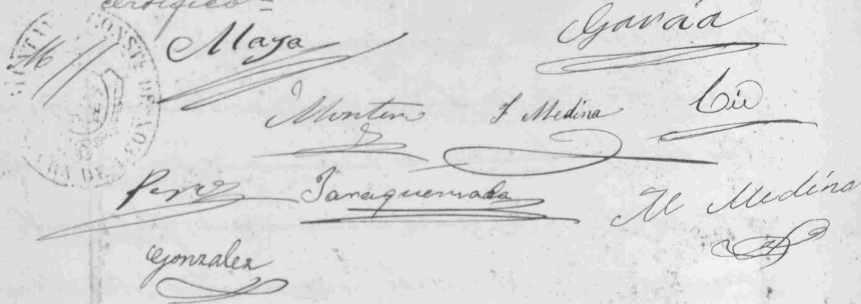 certifico =
Maya Garcia
Montero J Medina Cid
Perez Jaraquemada M Medina
Gonzalez